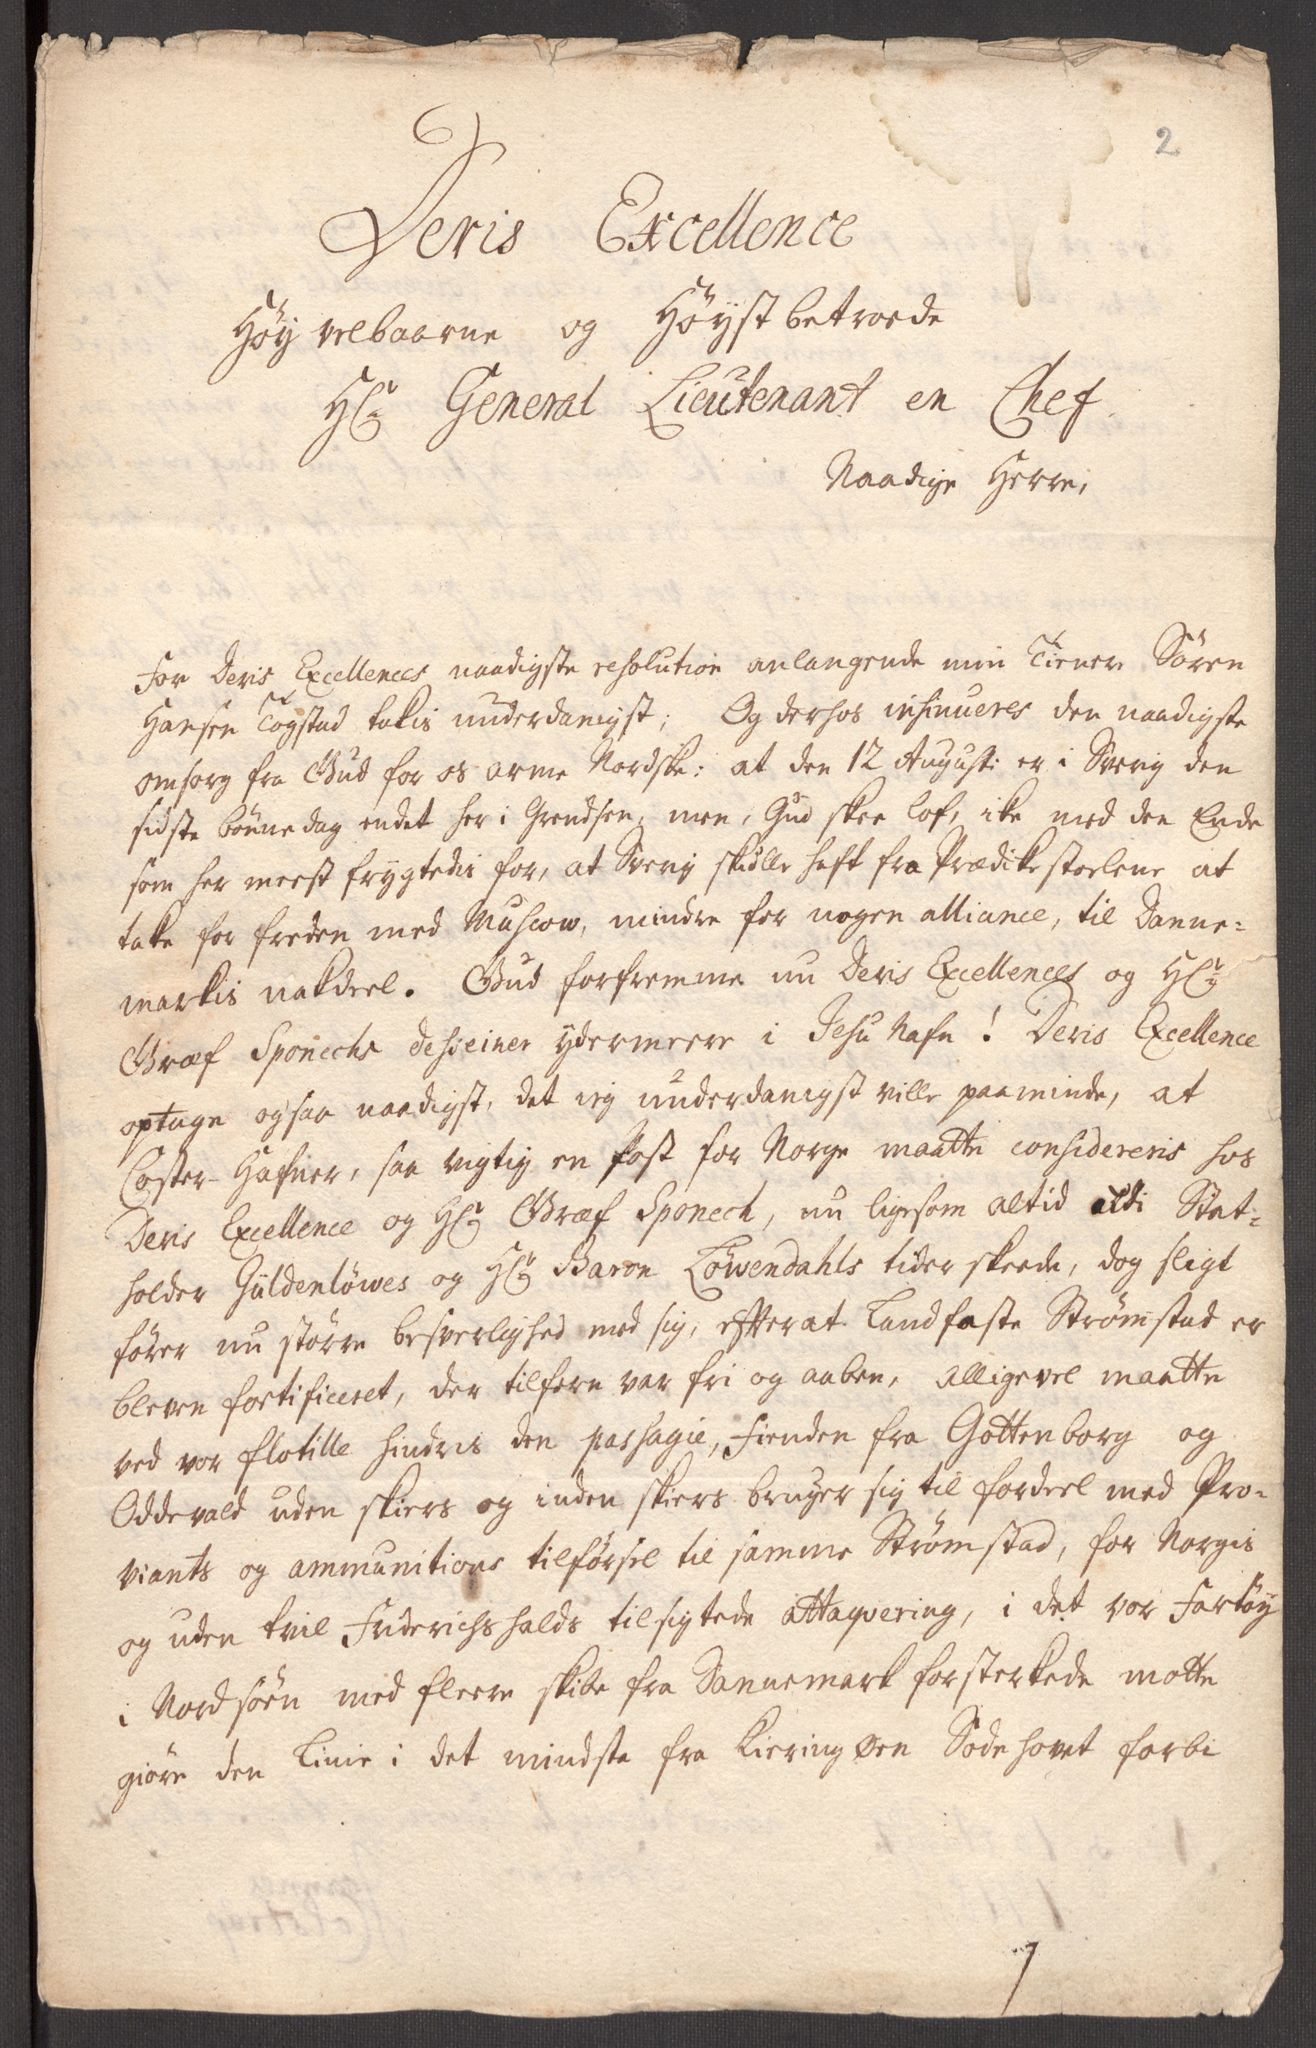 2
Deris Excellence
Höyvelbaarne og Höystbetroede
Hr General Lieutenant en Chef
Naadige Herre,
For Deris Excellences naadigste resolution anlangende min Tiener Sören
Hansen Togstad takis underdanigst; Og derhos insinueres den naadigste
omsorg fra Gud for os arme Nordske: at den 12 August: er i Sverig den
sidste bönnedag endet her i Grendsen, men, Gud skee lof, ike med den Ende
som her meest frygtedis for, at Sverig skulle haft fra Prædikestoelene at
take for freden med Muscow, mindre for nogen alliance, til Danne-
markis nakdeel. Gud forfremme nu Deris Excellences og Hr
Græf Sponechs deseiner ydermeere i Jesu Nafn! Deris Excellence
optage ogsaa naadigst, det ieg underdanigst ville paaminde, at
Coster-Hafner, saa vigtig en Post for Norge maatte considereris hos
Deris Excellence og Hr Græf Sponech, nu ligesom altid i Stat-
holder Güldenlöwes og Hr Baron Löwendahls tider skeede, dog sligt
förer nu större besverlighed med sig, efterat Landfaste Strømstad er
bleven fortificeret, der tilforn var fri og aaben, alligevel maatte
ved vor flotille hindris den passagie, Fienden fra Gottenborg og
Oddevald uden skiers og inden skiers bruger sig til fordeel med Pro-
viants og ammunitions tilförsel til samme Strømstad, for Norgis
og uden tvil Friderichshalds tilsigtede attaqvering, i det vor Fartöy
i Nordsöen med fleere skibe fra Dannemark forsterkede motte
giöre den Linie i det mindste fra Kieringøen Sodehovet forbi